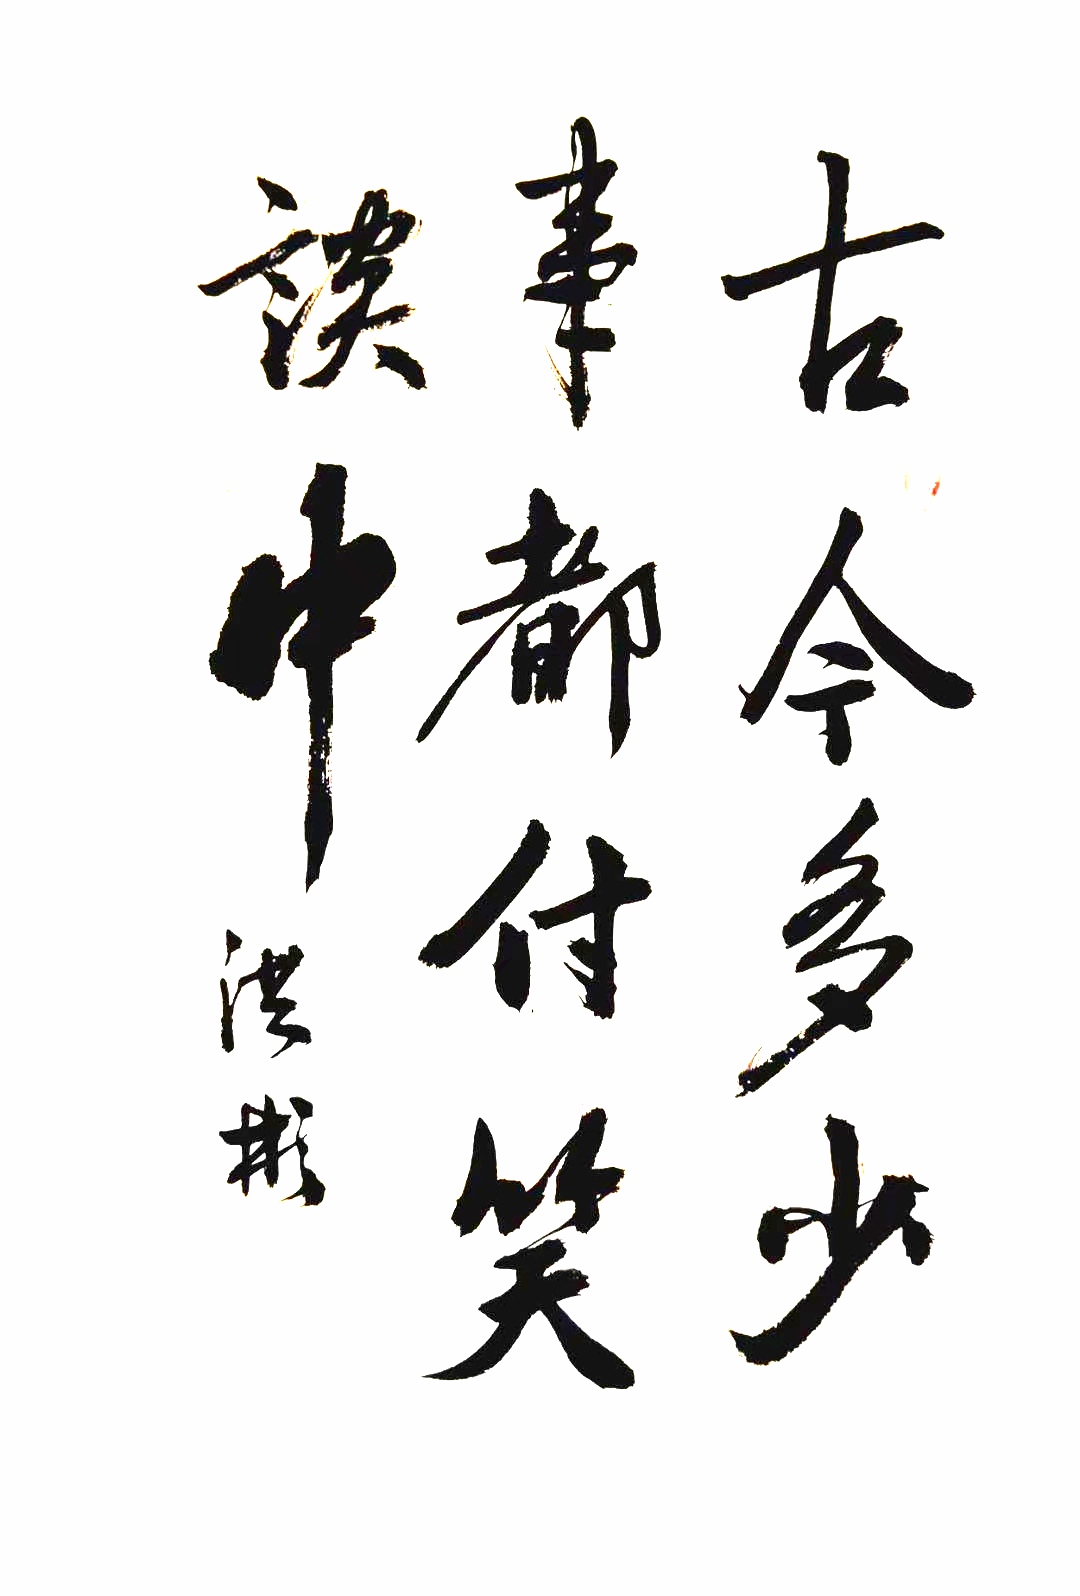 古今多少
事都付笑
談中
洪彬